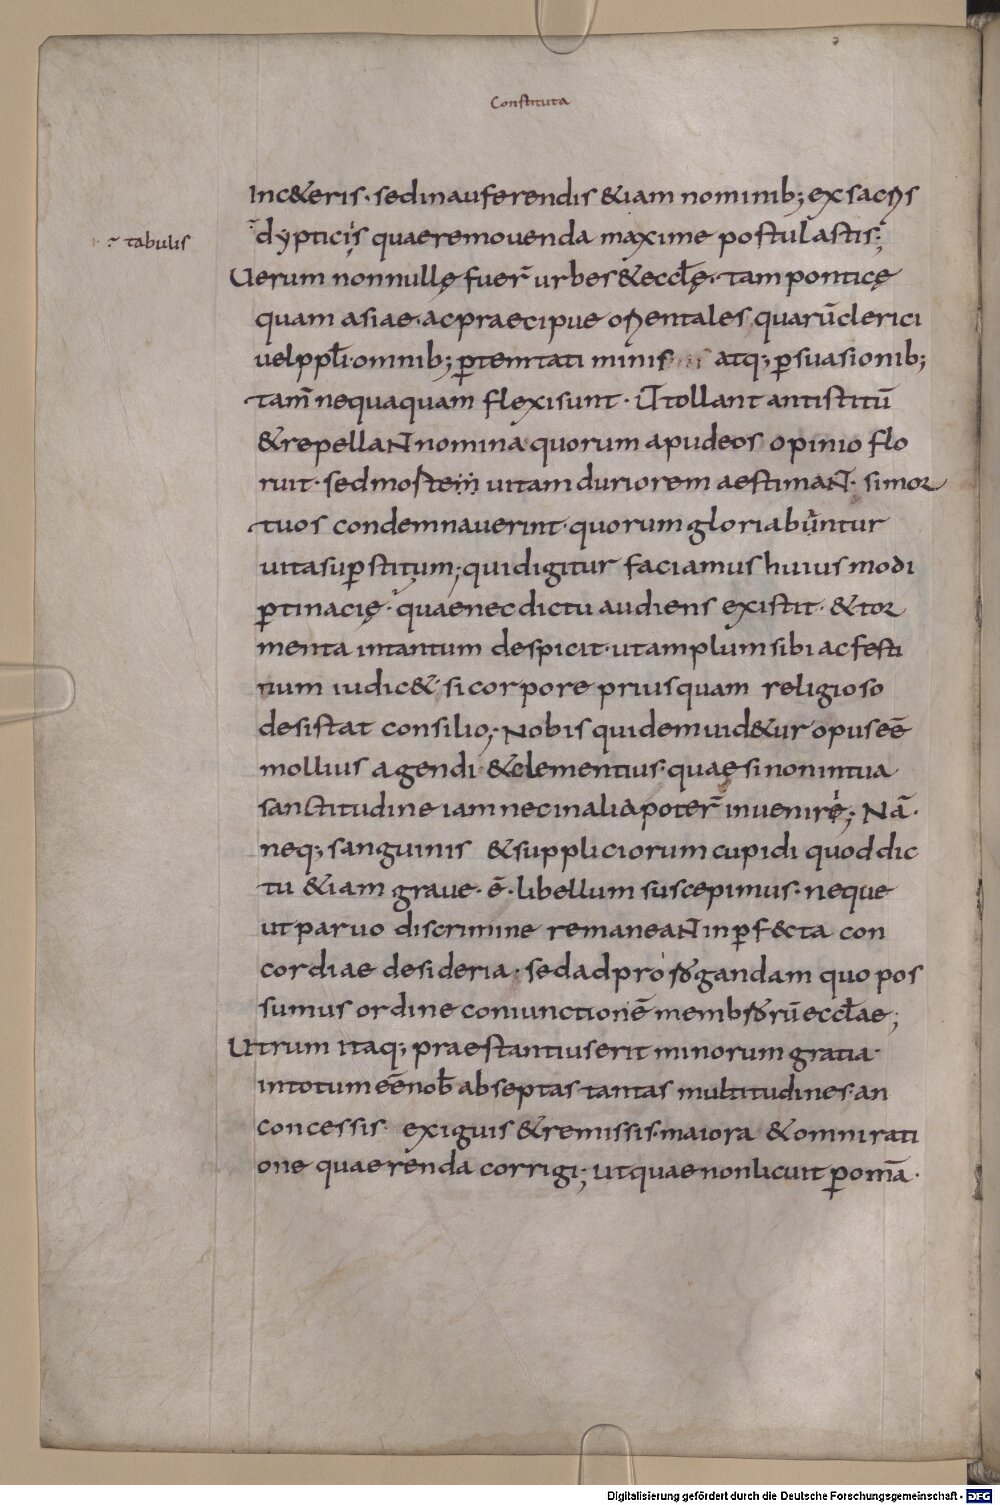 Constituta
Inc&eris· sed in auferendis &iam nominib; ex sacris
dypticis quae removenda maxime postulastis;
·i· tabulis
Uerum nonnullę fuer̄ urbes & eccl̄ę· tam ponticę
quam asiae· ac praecipue orientales quarū clerici
vel ppl̄i· omnib; ꝑtemtati minis atq; ꝑsuasionib;
tam̄ nequaquam flexi sunt· Ut tollant antistitū
& repellaNt nomina quorum apud eos opinio flo
ruit· sed mostem uitam duriorem aestimaN̄t· si mor
tuos condemnauerint· quorum gloriabuntur
uita supꝑstitum; quid igitur faciamus huius modi
ꝑtinacię· quae nec dictu audiens existit· & tor
menta intantum despicit· ut amplum sibi ac festi
uum iudic&· si corpore prius quam religioso
desistat consilio; Nobis quidem uid&ur opus eē
mollius agendi & clementius· quae si non in tua
sanctitudine iam nec in alia poter̄ inuenire; Nā·
neq; sanguinis & suppliciorum cupidi quod dic
tu &iam graue· ē· libellum suscepimus· neque
ut paruo discrimine remaneaNt inꝑf&cta con
cordiae desideria· sed ad prorogandam quo pos
sumus ordine coniunctionē membrorū eccl̄ae;
Utrum itaq; praestantius erit minorum gratia·
in totum eē nob̄ abseptas tantas multitudines· an
concessis exiguis & remissis· maiora & omni rati
one quaerenda corrigi; ut quae non licuit ꝑ omā·
Digitalisierung gefördert durch die Deutsche Forschungsgemeinschaft - DFG